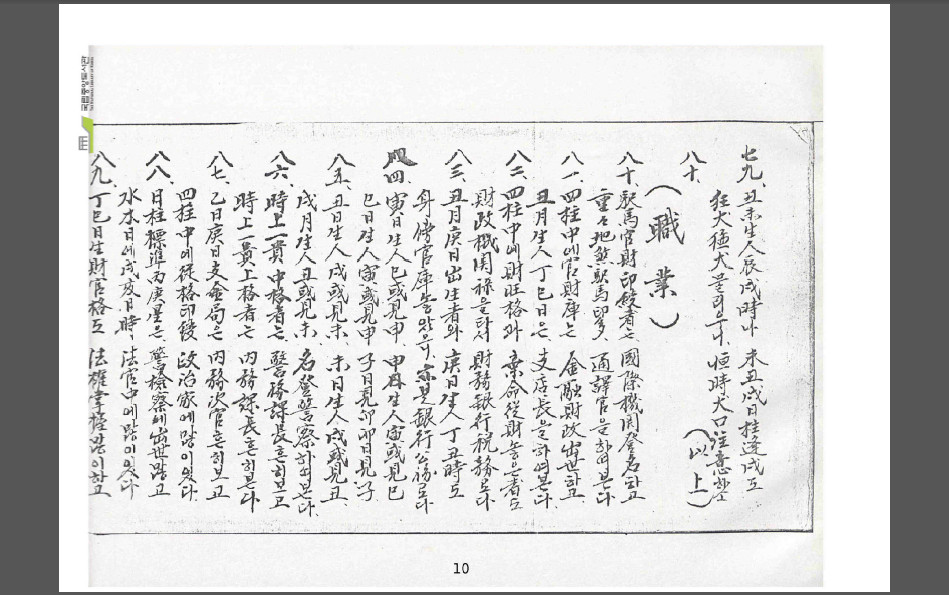 七九、丑未生人辰戌時나 未丑戌日柱逢戌도
狂犬猛犬물리오니 恒時犬口注意하소
八十、 (以上)
(職業)
八十、馭馬官財印綬者는 國際機関登名하고
重々地煞馭馬印多 通譯官을하여본다
八一、四柱中에官財庫는 金融財政出世하고
丑月生人丁巳日은 支店長을하여본다
八二、四柱中에財旺格과 棄命從財놓은者도
財政機関祿을타서 財務銀行税務로다
八三、丑月庚日出生者와 庚日生人丁丑時도
身傍官庫놓았으니 亦是銀行公務로다
八四、寅日生人巳或見申 申月生人寅或見巳
巳日生人寅或見申 子日見卯卯日見子
八五、丑日生人戌或見未 未日生人戌或見丑
戌月生人丑或見未 名登警察하여본다
八六、時上一貴中格者는 警務課長흔히보고
時上一貴上格者는 內務課長흔히본다
八七、乙日庚日支金局은 內務次官흔히보고
四柱中에從格印綬 政治家에많이있다
八八、日柱標準丙庚星은 警検察에出世많고
水木日에戌亥日時 法官中에많이있다
八九、丁巳日生財官格도 法雄掌權많이하고
10